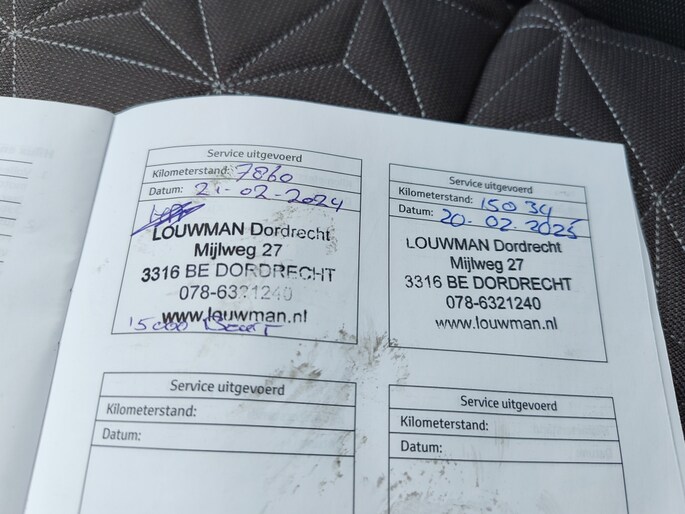 Service uitgevoerd
Kilometerstand: 7860
Datum: 21-02-2024
LOUWMAN Dordrecht
Mijlweg 27
3316 BE DORDRECHT
078-6321240
www.louwman.nl
15000 Beurt
Service uitgevoerd
Kilometerstand: 15034
Datum: 20-02-2025
LOUWMAN Dordrecht
Mijlweg 27
3316 BE DORDRECHT
078-6321240
www.louwman.nl
Service uitgevoerd
Kilometerstand:
Datum:
Service uitgevoerd
Kilometerstand:
Datum: